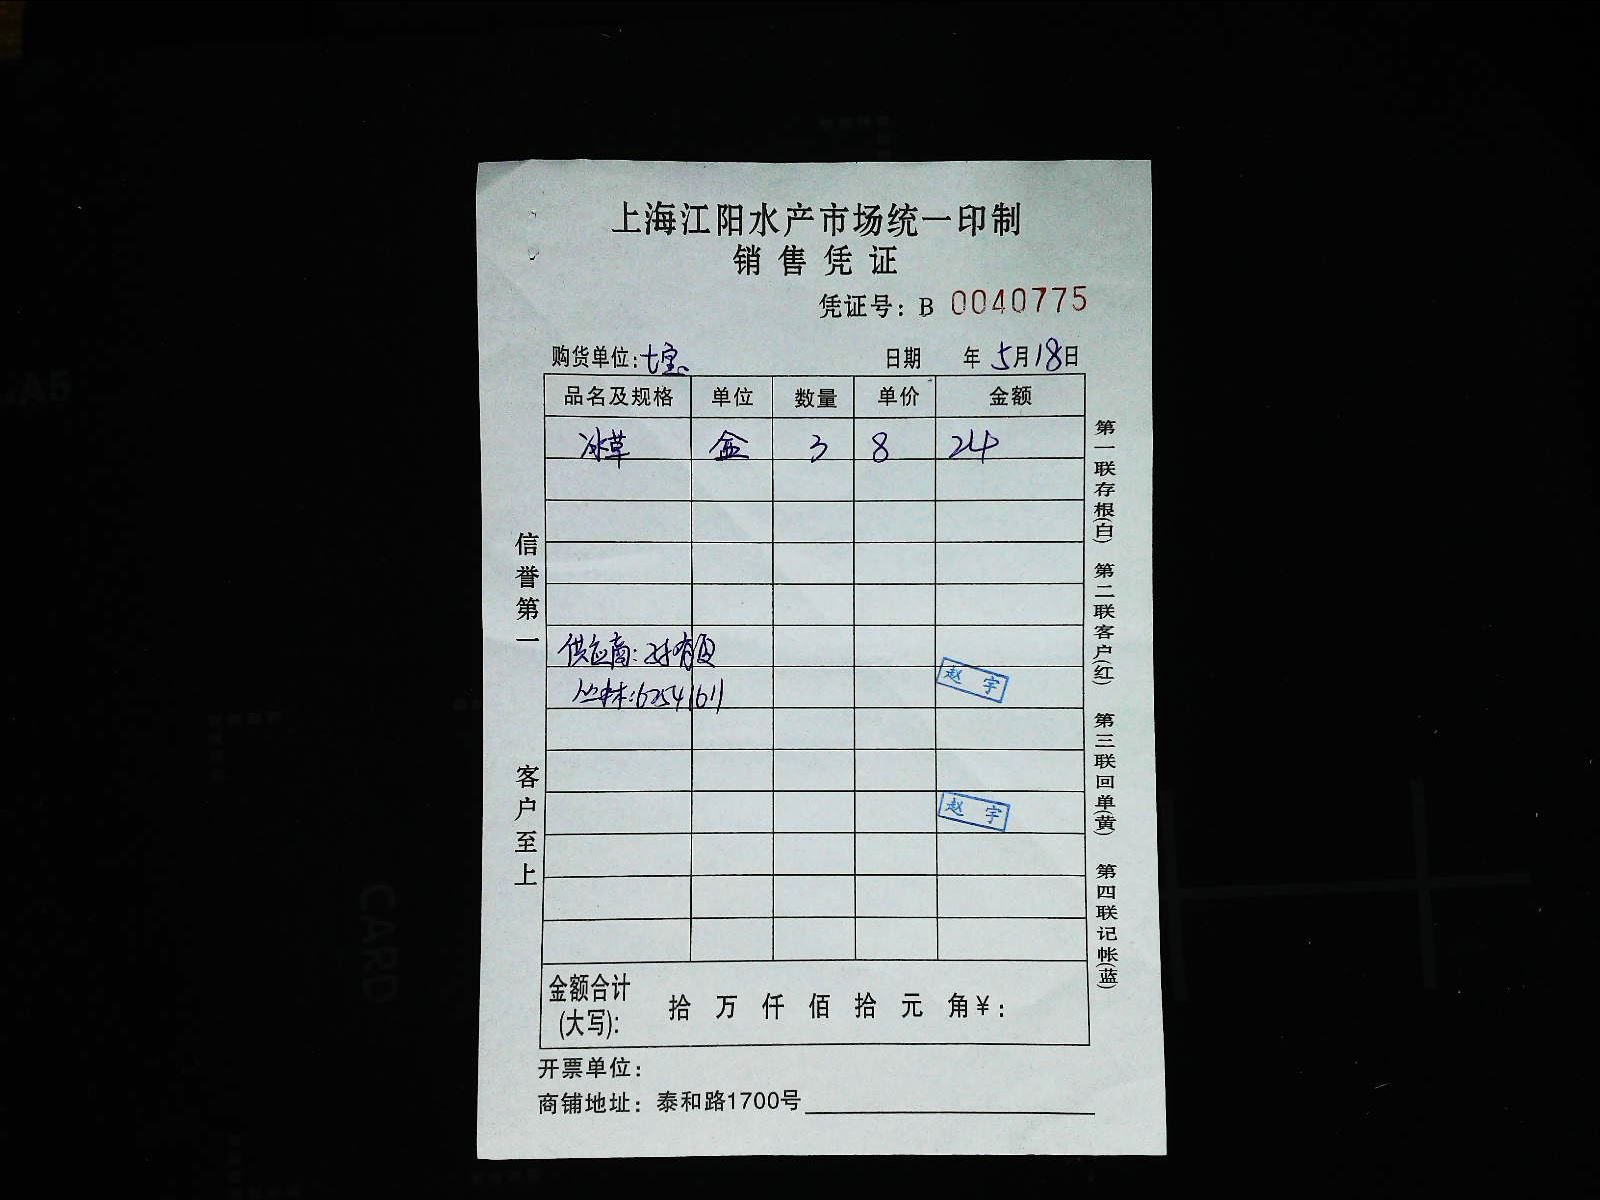 上海江阳水产市场统一印制
销售凭证
凭证号：B 0040775
购货单位：七宝 日期 年 5月18日
品名及规格 单位 数量 单价 金额
冰草 盒 3 8 24
供应商：
62541611
赵宇
赵宇
金额合计(大写)： 拾 万 仟 佰 拾 元 角 ¥：
开票单位：
商铺地址：泰和路1700号
信誉第一
客户至上
第一联存根(白) 第二联客户(红) 第三联回单(黄) 第四联记帐(蓝)
A5
CARD